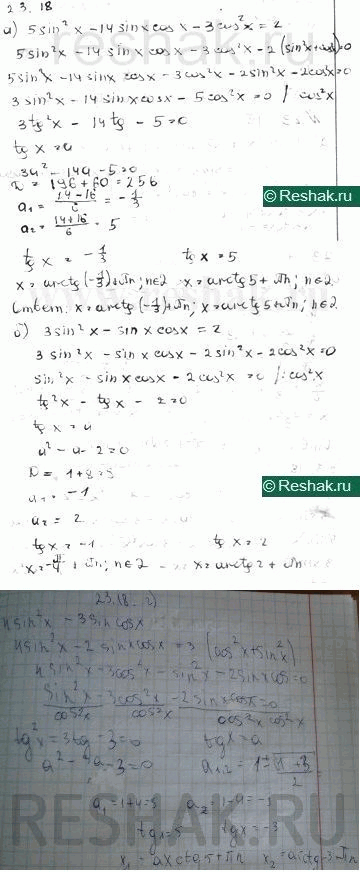 23.18
а) 5sin²x - 14sinxcosx - 3cos²x = 2
5sin²x - 14sinxcosx - 3cos²x - 2(sin²x+cos²x)=0
5sin²x - 14sinx cosx - 3cos²x - 2sin²x - 2cos²x=0
3sin²x - 14sinxcosx - 5cos²x = 0 / cos²x
3tg²x - 14tg - 5=0
tg x = a
3a² - 14a - 5=0
D = 196 + 60 = 256
a₁ = (14-16)/6 = -1/3
a₂ = (14+16)/6 = 5
Reshak.ru
tg x = -1/3 tg x = 5
x = arctg(-1/3)+πn; n∈Z x = arctg5 + πn, n∈Z
Ответ: x = arctg(-1/3)+πn; x = arctg5+πn; n∈Z
б) 3sin²x - sinxcosx = 2
3sin²x - sinxcosx - 2sin²x - 2cos²x=0
sin²x - sinxcosx - 2cos²x = 0 /:cos²x
tg²x - tgx - 2=0
tgx = u
u² - u - 2=0
D = 1+8=9
Reshak.ru
u₁ = -1
u₂ = 2
tgx = -1 tgx = 2
x = -π/4 + πn; n∈Z x = arctg2 + πn
23.18 г)
4sin²x - 3sinxcosx
4sin²x - 2sinxcosx = 3(cos²x+sin²x)
4sin²x - 3cos²x - sin²x - 2sinxcosx=0
sin²x - 3cos²x - 2sinxcosx=0
cos²x cos²x cos²x cos²x
tg²x = 3tg - 3=0 tgx=a
a² - 4a - 3=0
a₁=1+4=5 a₂=1-4=-3
tg1=5 tgx=-3
x₁ = arctg5+πn x₂ = arctg-3+πn
RESHAK.RU